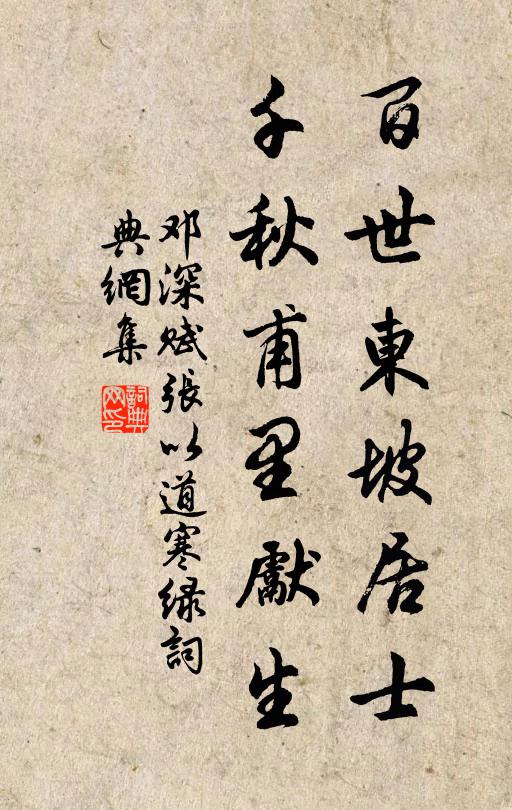 百世東坡居士
千秋甫里獻生
邓深赋張以道寒绿詞
典網集
詞典
网印